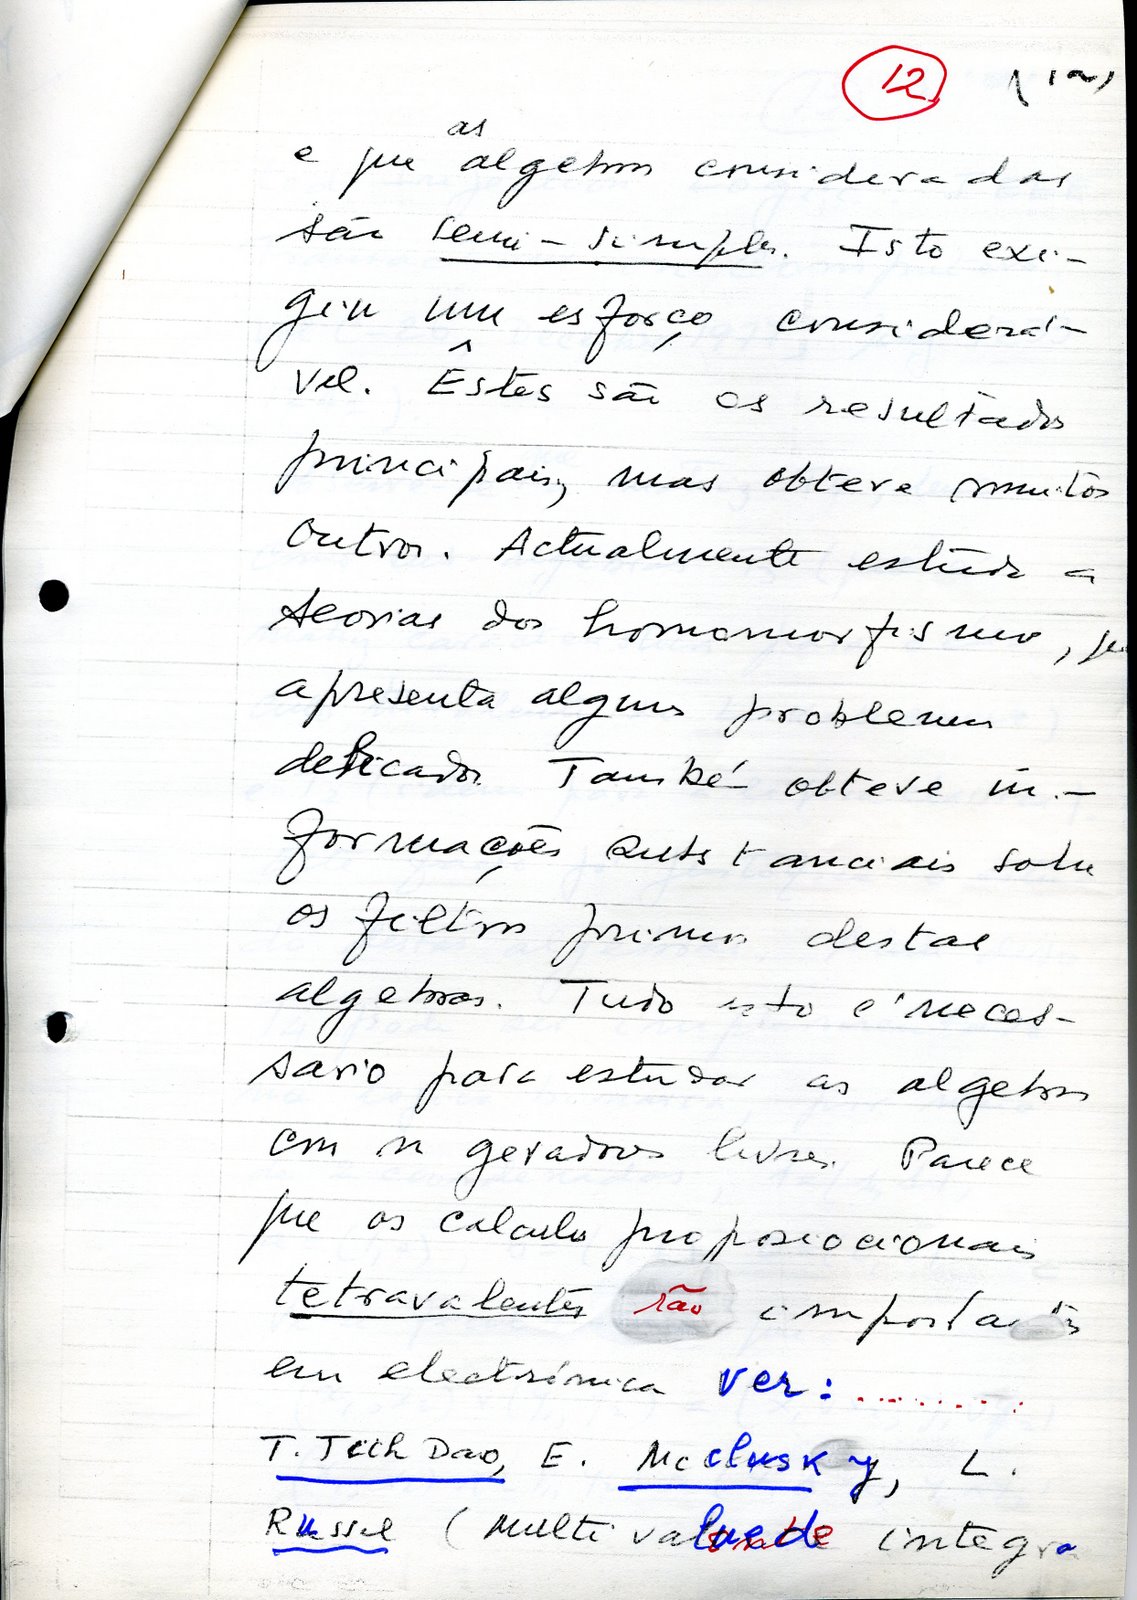 12 (12)
as
e que algebras consideradas
são semi-simples. Isto exi-
giu um esforço considerá-
vel. Êstes são os resultados
principais, mas obteve muitos
outros. Actualmente estuda a
teorias dos homomorfismo, que
apresenta alguns problemas
delicados. També obteve in-
formações substanciais sobre
os filtros primos destas
algebras. Tudo isto é neces-
sario para estudar as algebras
com n geradores livres. Parece
que os calculos proposiocionais
tetravalentes são importantes
em electrónica ver: ........
T. Tich Dao, E. Mcclusky, L.
Russel (Multivaluede integra